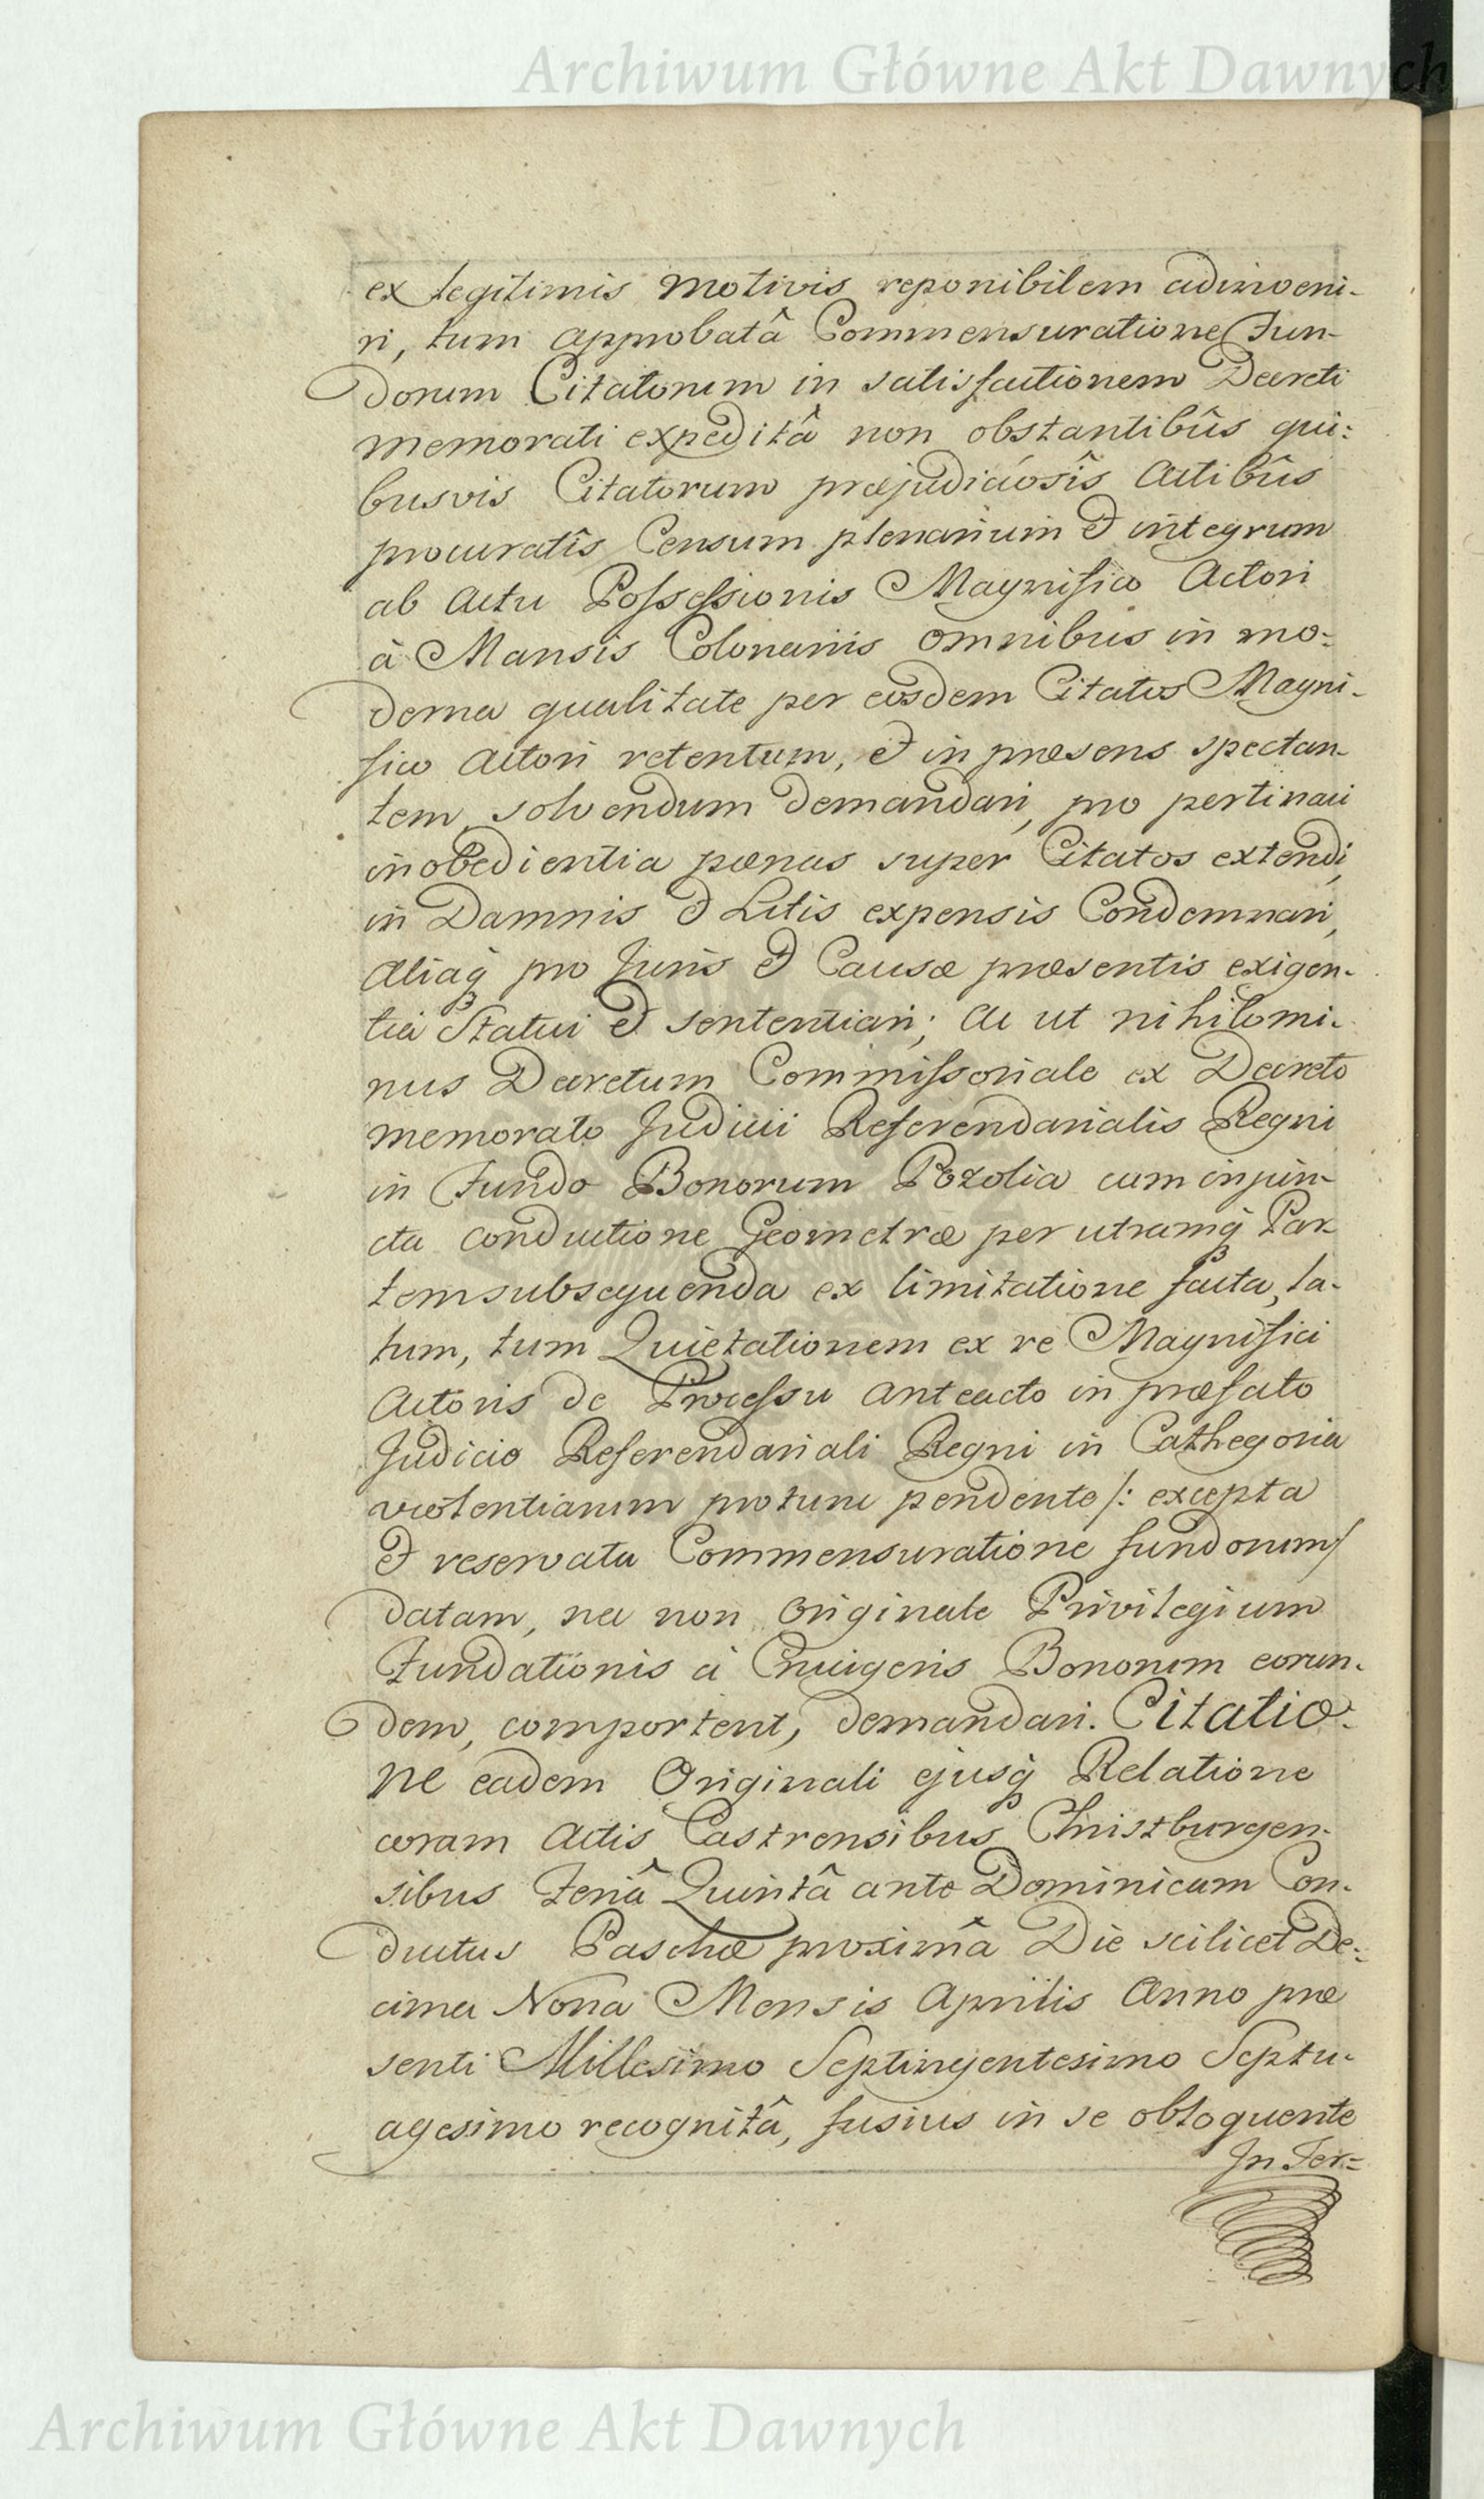 Archiwum Główne Akt Dawnych
ex legitimis motivis reponibilem adinveni-
ri, tum approbatâ Commensuratione Fun-
dorum Citatorum in satisfactionem Decreti
memorati expeditâ non obstantibûs qui:
busvis Citatorum præjudiciosîs Actibûs
procuratîs Censum plenarium et integrum
ab Actu Possessionis Magnifico Actori
à Mansis Colonariis omnibus in mo:
derna qualitate per eosdem Citatos Magni-
fico Actori retentum, et in præsens spectan-
tem, solvendum demandari, pro pertinaci
inobedientia pœnas super Citatos extendi,
in Damnis et Litis expensis Condemnari,
Aliaq3 pro Juris et Causæ præsentis exigen-
tia Statui et sententiari; Ac ut nihilomi-
nus Decretum Commissoriale ex Decreto
memorato Judicii Referendarialis Regni
in Fundo Bonorum Pozolia cum injun-
cta conductione Geometræ per utramq3 Par
tem subsequenda ex limitatione facta, la-
tum, tum Quietationem ex re Magnifici
Actoris de Processu anteacto in præfato
Judicio Referendariali Regni in Cathegoria
violentiarum protunc pendente /: excepta
et reservata Commensuratione fundorum /
datam, nec non Originale Privilegium
Fundationis a Crucigeris Bonorum eorun-
dem, comportent, demandari. Citatio-
ne eadem Originali ejusq3 Relatione
coram Actis Castrensibus Christburgen-
sibus Feriâ Quintâ ante Dominicam Con-
ductus Paschæ proximâ Die scilicet De-
cima Nona Mensis Aprilis Anno præ
senti Millesimo Septingentesimo Septu-
agesimo recognitâ, fusius in se obloquente
In Ter=
Archiwum Główne Akt Dawnych